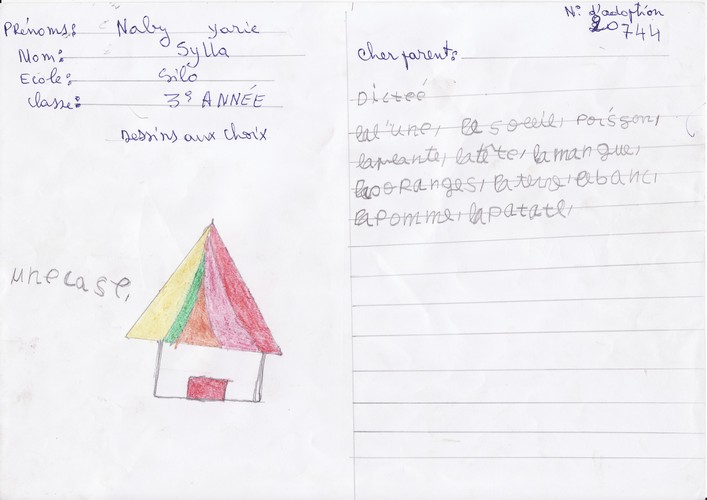 Prénoms: Naby Yarie
Nom: Sylla
Ecole: Silo
Classe: 3e ANNÉE
Dessins aux choix
une case,
N° d'adoption
20744
Cher parent:
Dicteé
lal'une, le soleil, poisson,
laplante, latête, lamangue,
oranges, laterre, lebanc,
lapomme, lapatate,